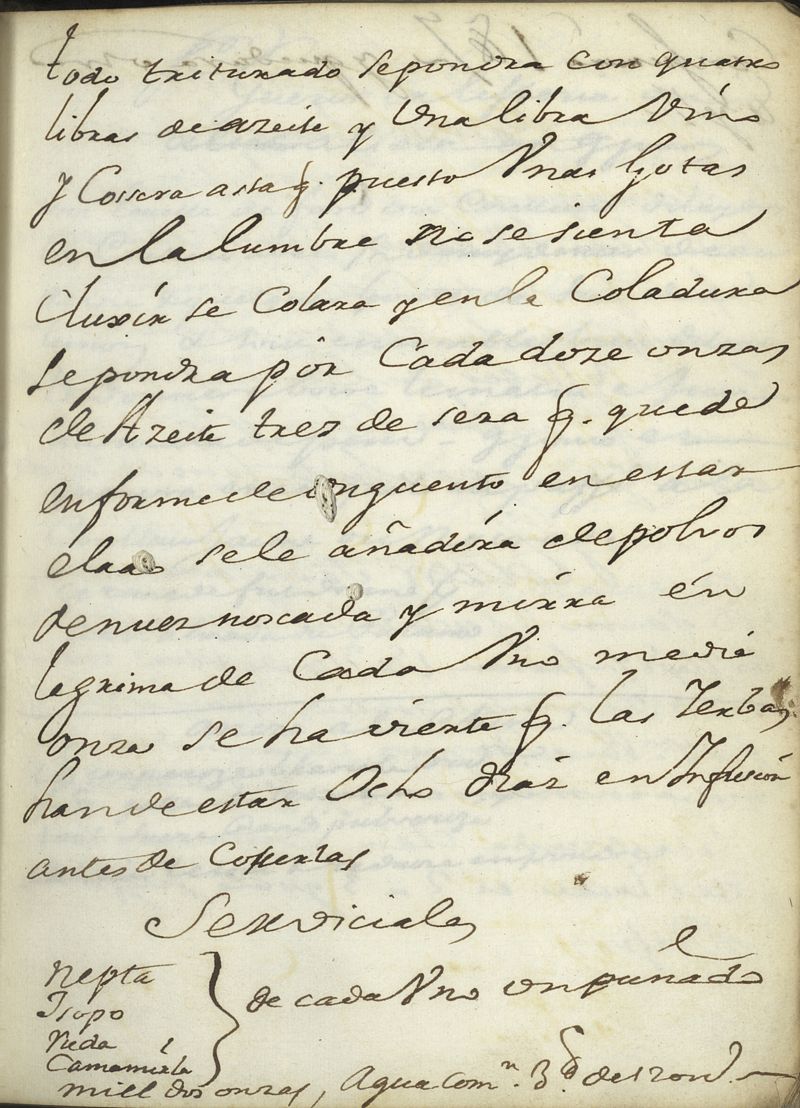 todo triturado se pondra con quatro
libras de azeite y Una libra Vino
y Cossera asta q. puesto Unas Gotas
en la lumbre no se sienta
Cluxir se Colara y en la Coladura
se pondra por Cada doze onzas
de Azeite tres de sera q. quede
en forma de ynguento en estar
elado se le añadira de polvos
de nuez noscada y mirra en
lagrima de Cada Uno media
onza se ha vierte q. las Yerbas
han de estar Ocho dias en Infusion
antes de Cosserlas
Serviciales
Nepta
Isopo
Reda
Camamirla
de cada Uno un puñado
miel dos onzas, Agua Com.n